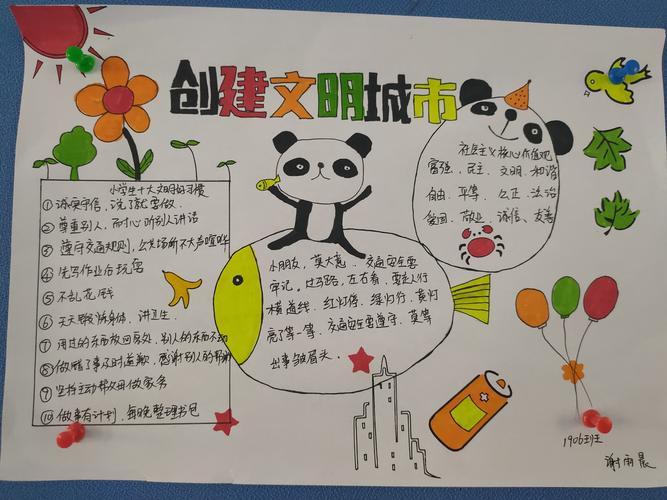 创建文明城市
小学生十大文明好习惯
①诚实守信，说了就要做.
②尊重别人，耐心听别人讲话
③遵守交通规则，公共场所不大声喧哗
④先写作业后玩耍
⑤不乱花钱
⑥天天锻炼身体，讲卫生.
⑦用过的东西放回原处，别人的东西不动
⑧做错了事及时道歉，感谢别人的帮助
⑨坚持主动帮父母做家务
⑩做事有计划，每晚整理书包
社会主义核心价值观
富强、民主、文明、和谐
自由、平等、公正、法治
爱国、敬业、诚信、友善
小朋友，莫大意，交通安全要
牢记，过马路，左右看，要走人行
横道线.红灯停，绿灯行，黄灯
亮了等一等，交通安全要遵守，莫等
出事皱眉头.
1906班
谢雨晨